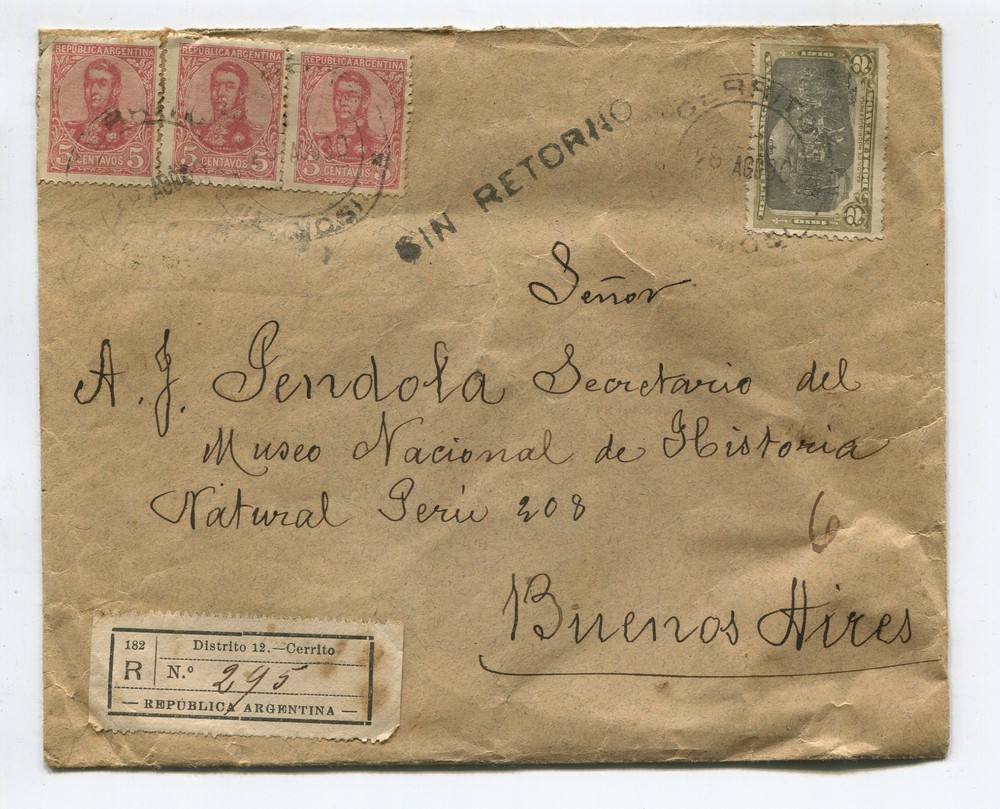 REPÚBLICA ARGENTINA
5 CENTAVOS 5
REPÚBLICA ARGENTINA
5 CENTAVOS 5
REPÚBLICA ARGENTINA
5 CENTAVOS 5
AGO
CERRITO
AGO
SIN RETORNO
Señor
A. J. Pendola Secretario del
Museo Nacional de Historia
Natural Perú 208
6
Buenos Aires
182 Distrito 12.—Cerrito
R N.º 295
— REPÚBLICA ARGENTINA —